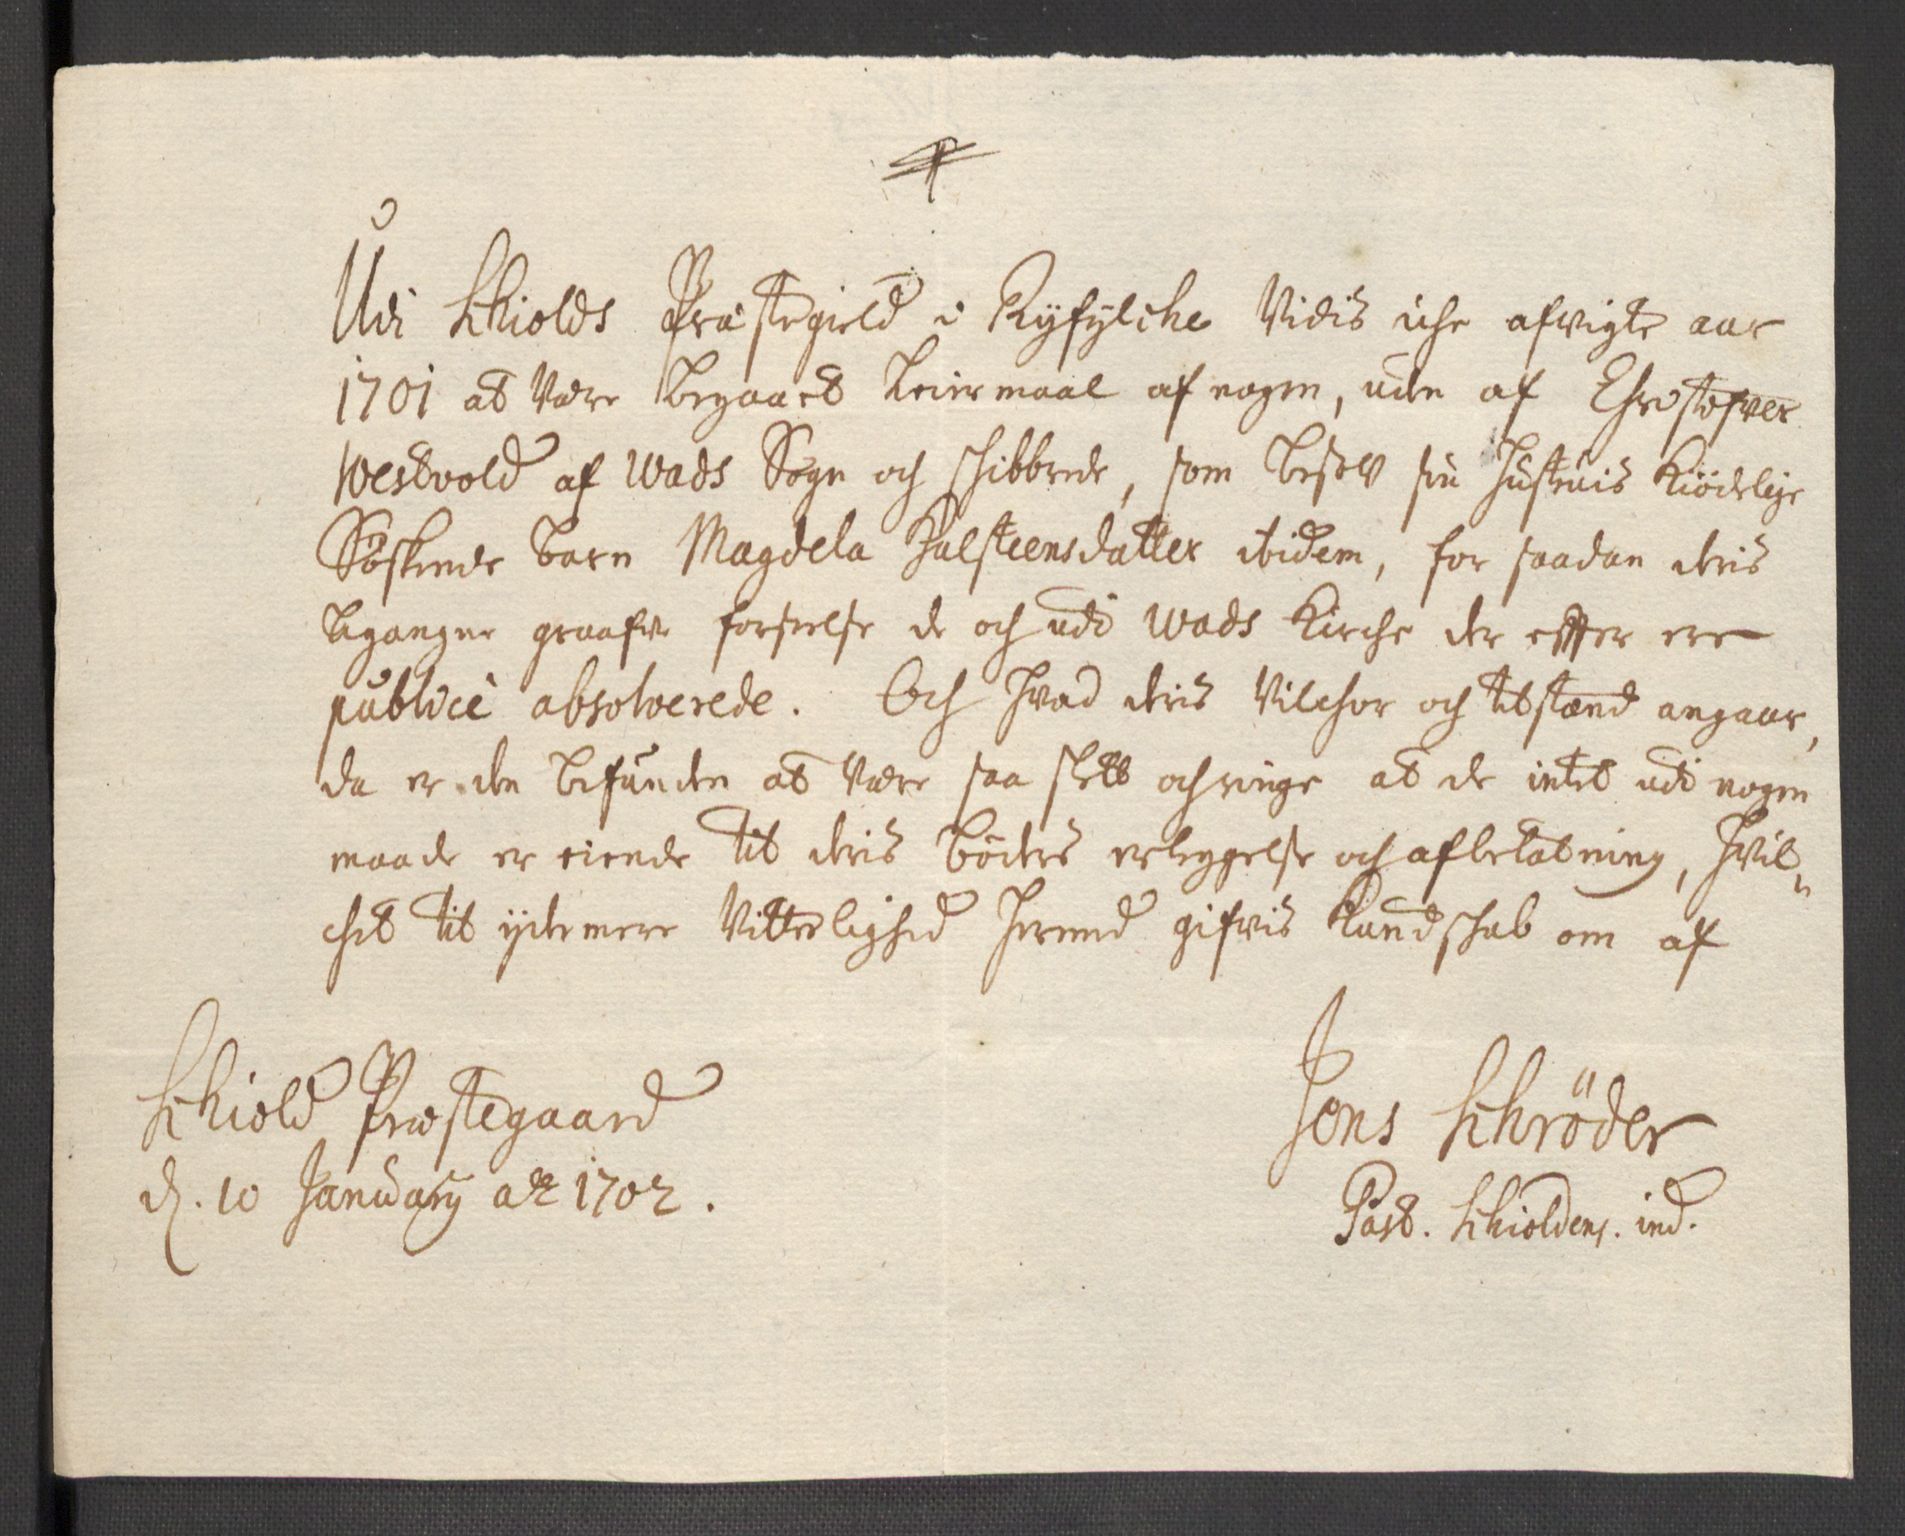 Udi Schiolds Præstegield i Ryfylche Vidis iche afvigte aar
1701 at være begaaet Leiermaal af nogen, uden af Christofver
Westvold af Wads Sogn och schibbrede, som besov sin Hustruis kiödelige
Söskende barn Magdela Halsteensdatter ibidem, for saadan deris
begangne graafve forseelse de och udi Wads Kirche der effter ere
publicè absolverede. Och hvad deris Vilchor och tilstand angaar,
da er den befunden at være saa slett och ringe at de intet udi nogen
maade er eiende til deris böders erleggelse och afbetalning, hvil-
chet til ydermere Vitterlighed hermed gifvis Kundschab om af
Schiold Præstegaard
d. 10 January aō 1702.
Jens Schröder
Past. Schioldens. ind.